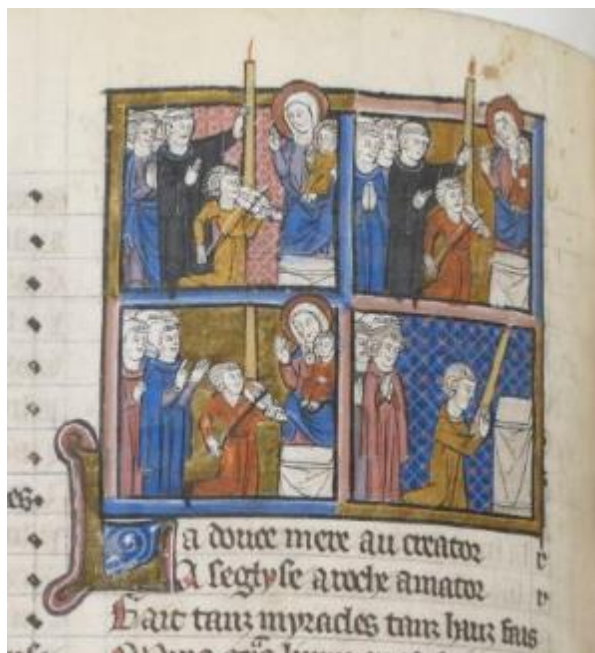 La douce mere au creator
A seglyse a roche amator
Fait tanz myracles tanz hauz fais